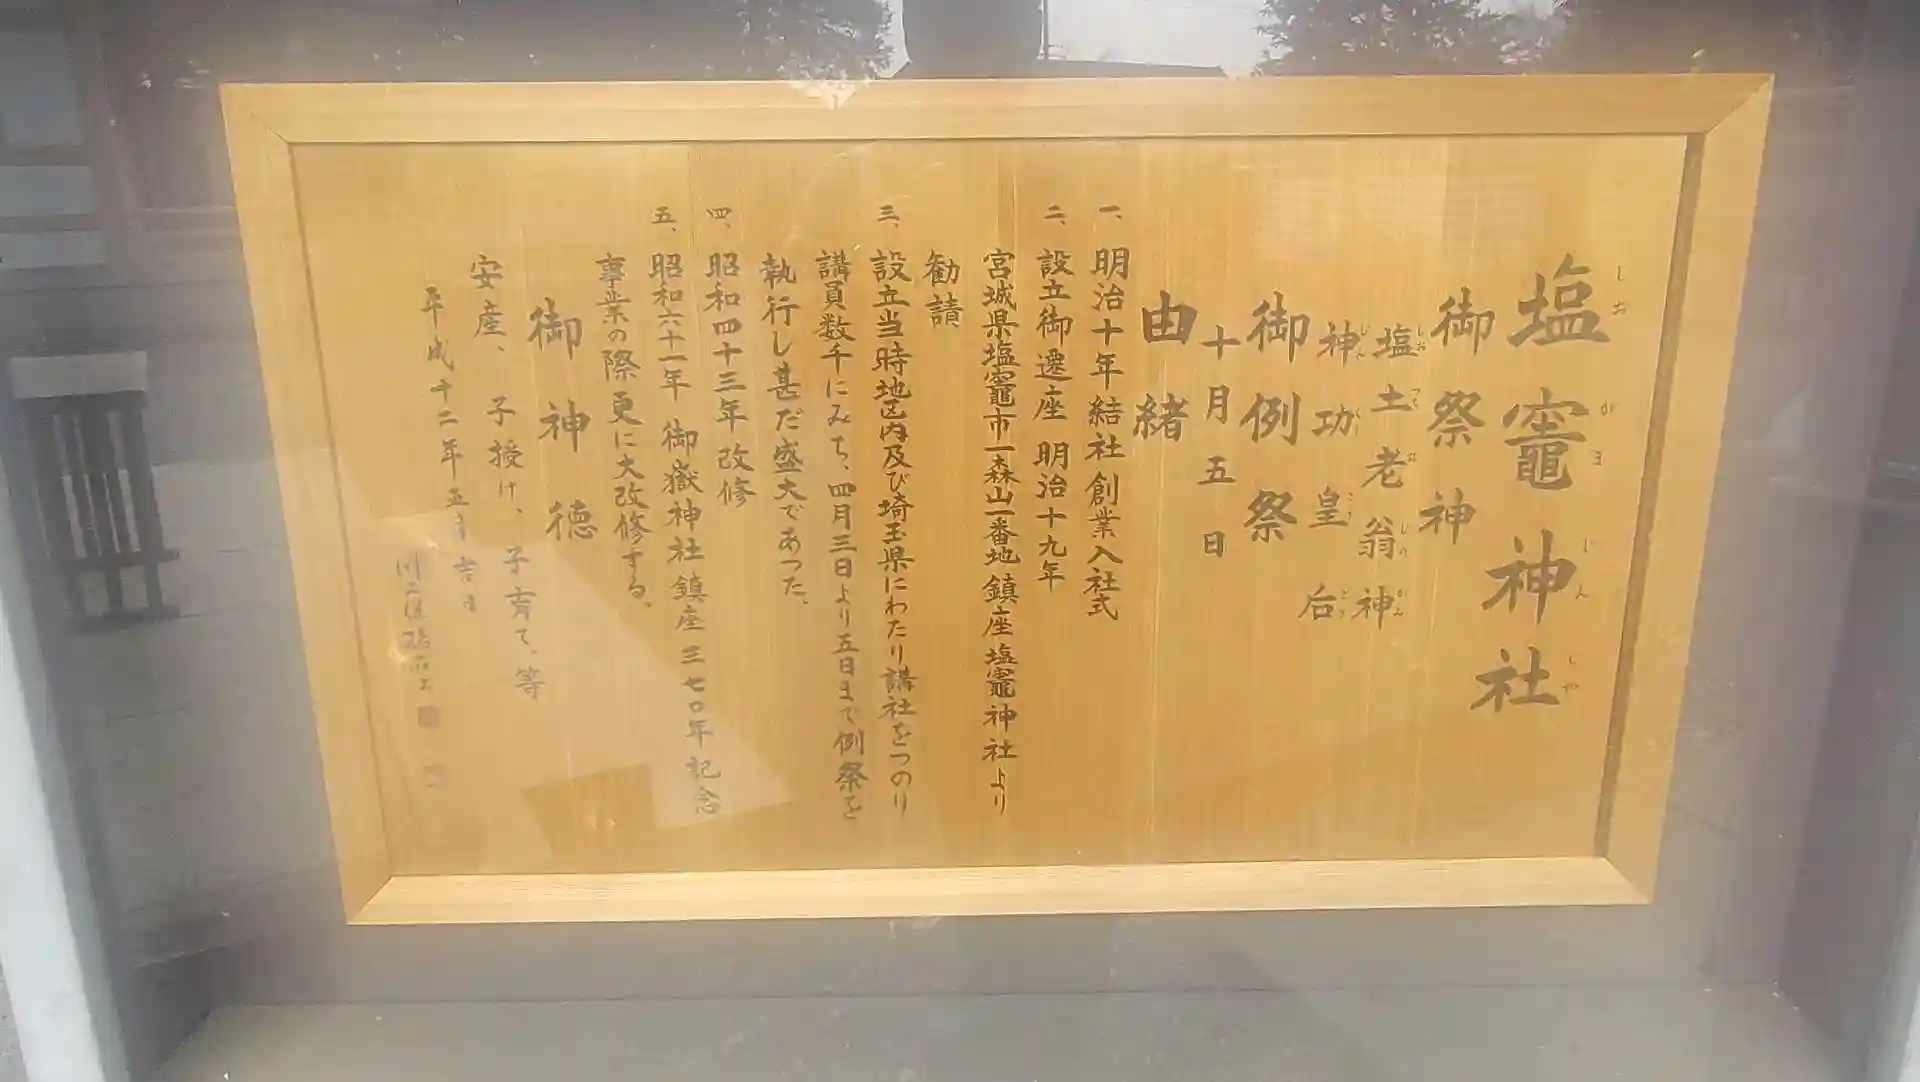 塩竈神社
しおがまじんしゃ
御祭神
塩土老翁神
しおつちおじのかみ
神功皇后
じんぐうこうごう
御例祭
十月五日
由緒
一、明治十年結社創業入社式
二、設立御遷座 明治十九年
宮城県塩竈市一森山一番地 鎮座 塩竈神社より
勧請
三、設立当時地区内及び埼玉県にわたり講社をつのり
講員数千にみち、四月三日より五日まで例祭を
執行し甚だ盛大であつた、
四、昭和四十三年改修
五、昭和六十一年 御嶽神社鎮座三七〇年記念
事業の際更に大改修する。
御神徳
安産、子授け、子育て、等
平成十二年五月吉日